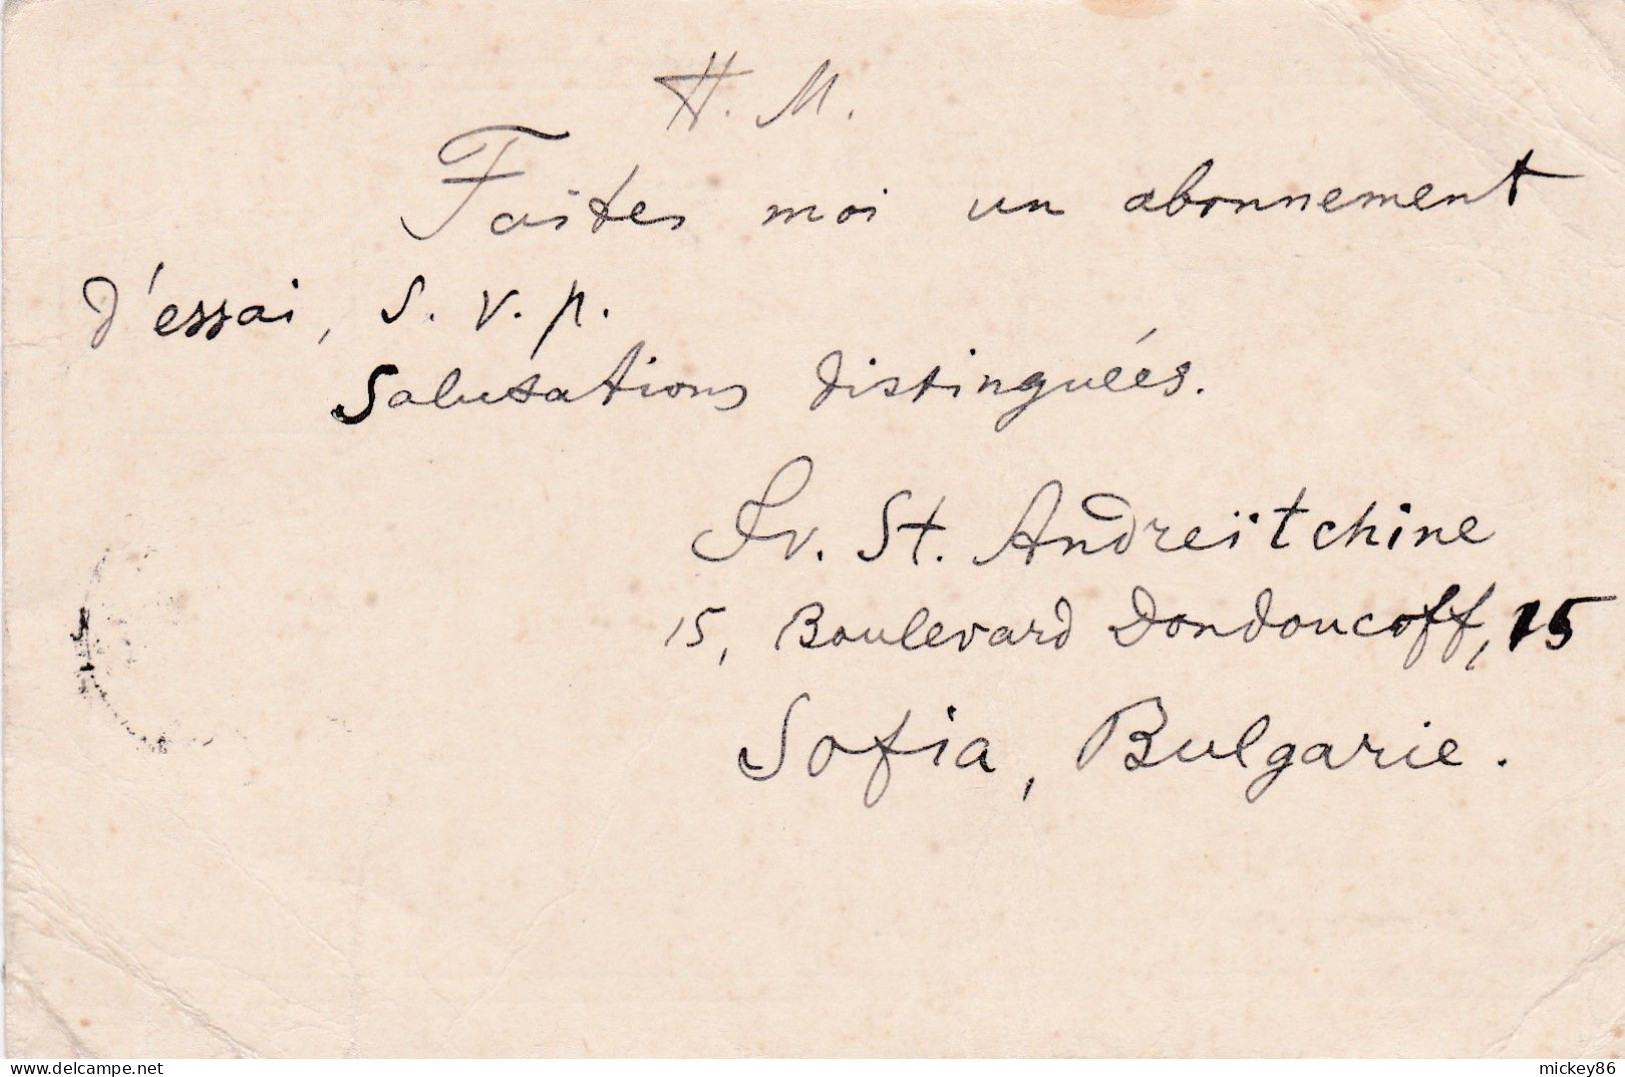 H. M.
Faites moi un abonnement
d'essai, s. v. p.
Salutations distinguées.
Iv. St. Andreïtchine
15, Boulevard Dondoucoff, 15
Sofia, Bulgarie.
delcampe.net
mickey86